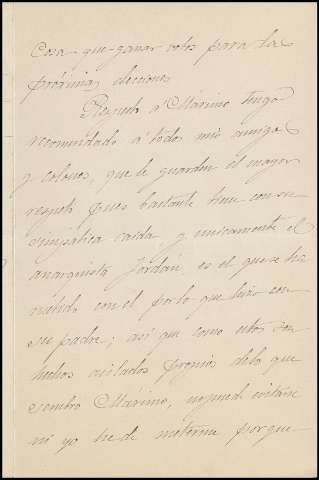 Cosa que ganar votos para las
próximas elecciones
Respecto a Máximo tengo
recomendado á todos mis amigos
y colonos, que le guarden el mayor
respeto pues bastante tiene con su
simpatica caida, y unicamente el
anarquista Jordán, es el que se ha
metido con él por lo que hizo con
su padre; asi que como estos son
hechos aislados propios de lo que
sembro Máximo, no puedo evitarlo
ni yo he de meterme porque